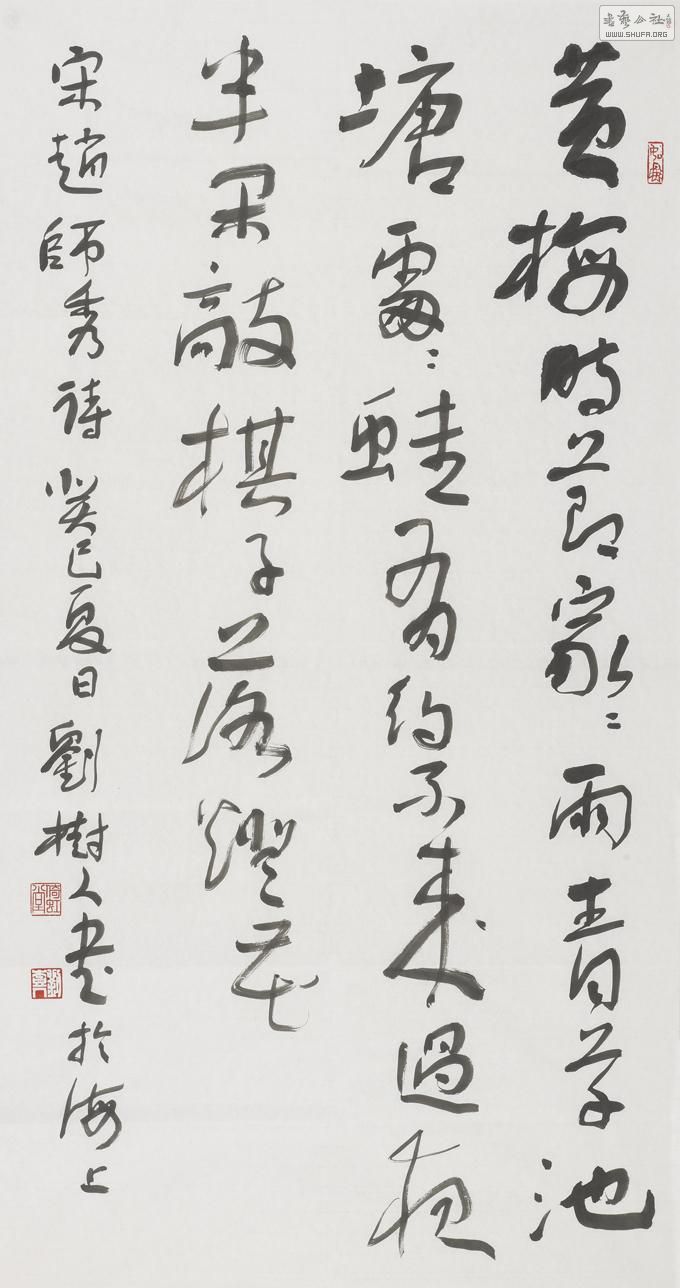 黄梅時節家〻雨青草池
塘處〻蛙有約不來過夜
半閑敲棋子落燈花
宋趙師秀詩 癸巳夏日劉樹人書於海上
倚虹堂
書藝公社
WWW.SHUFA.ORG